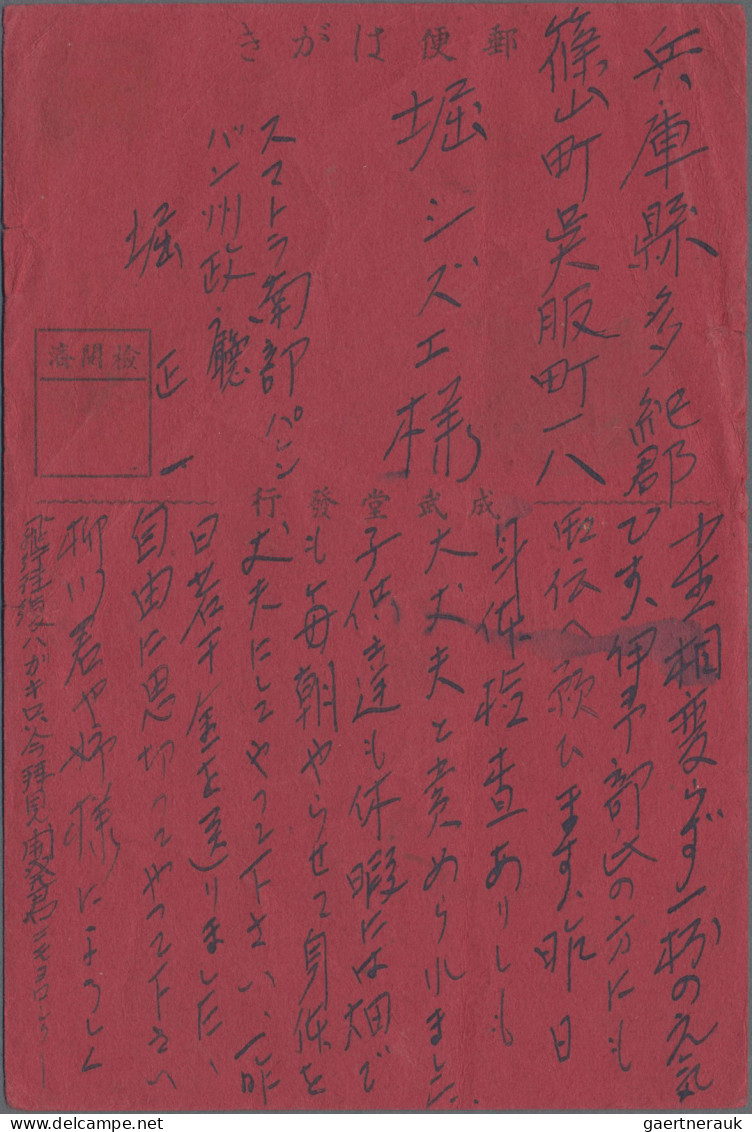 郵便はがき
兵庫縣多紀郡
篠山町呉服町一八
堀シズエ様
スマトラ南部パレン
バン州政廳
堀正一
検閲済
成武堂發行
相変らず一杯の元気
です、伊予部氏の方にも
伝へ願ひます、昨日
身体検査ありしも
大丈夫と責められました
子供達も休暇には畑で
も毎朝やらせて身体を
丈夫にしてやって下さい、一昨
日若干金を送りました、
自由に思切ってやって下さい
柳川君や姉様によろしく
飛行往復ハガキ只今拝見
gaertnerauk